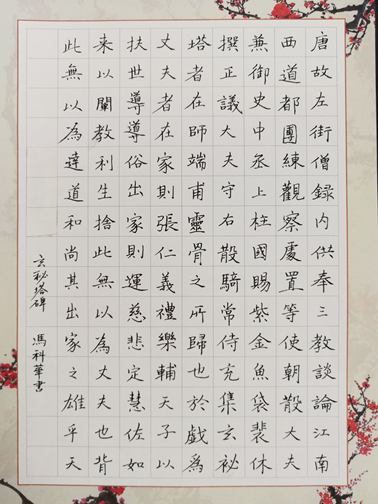 唐故左街僧録内供奉三教談論江南
西道都團練觀察處置等使朝散大夫
兼御史中丞上柱國賜紫金魚袋裴休
撰正議大夫守右散騎常侍充集玄祕
塔者在師端甫靈骨之所歸也於戲為
丈夫者在家則張仁義禮樂輔天子以
扶世導導俗出家則運慈悲定慧佐如
来以闡教利生捨此無以為丈夫也背
此無以為達道和尚其出家之雄乎天
玄秘塔碑 馮科華書